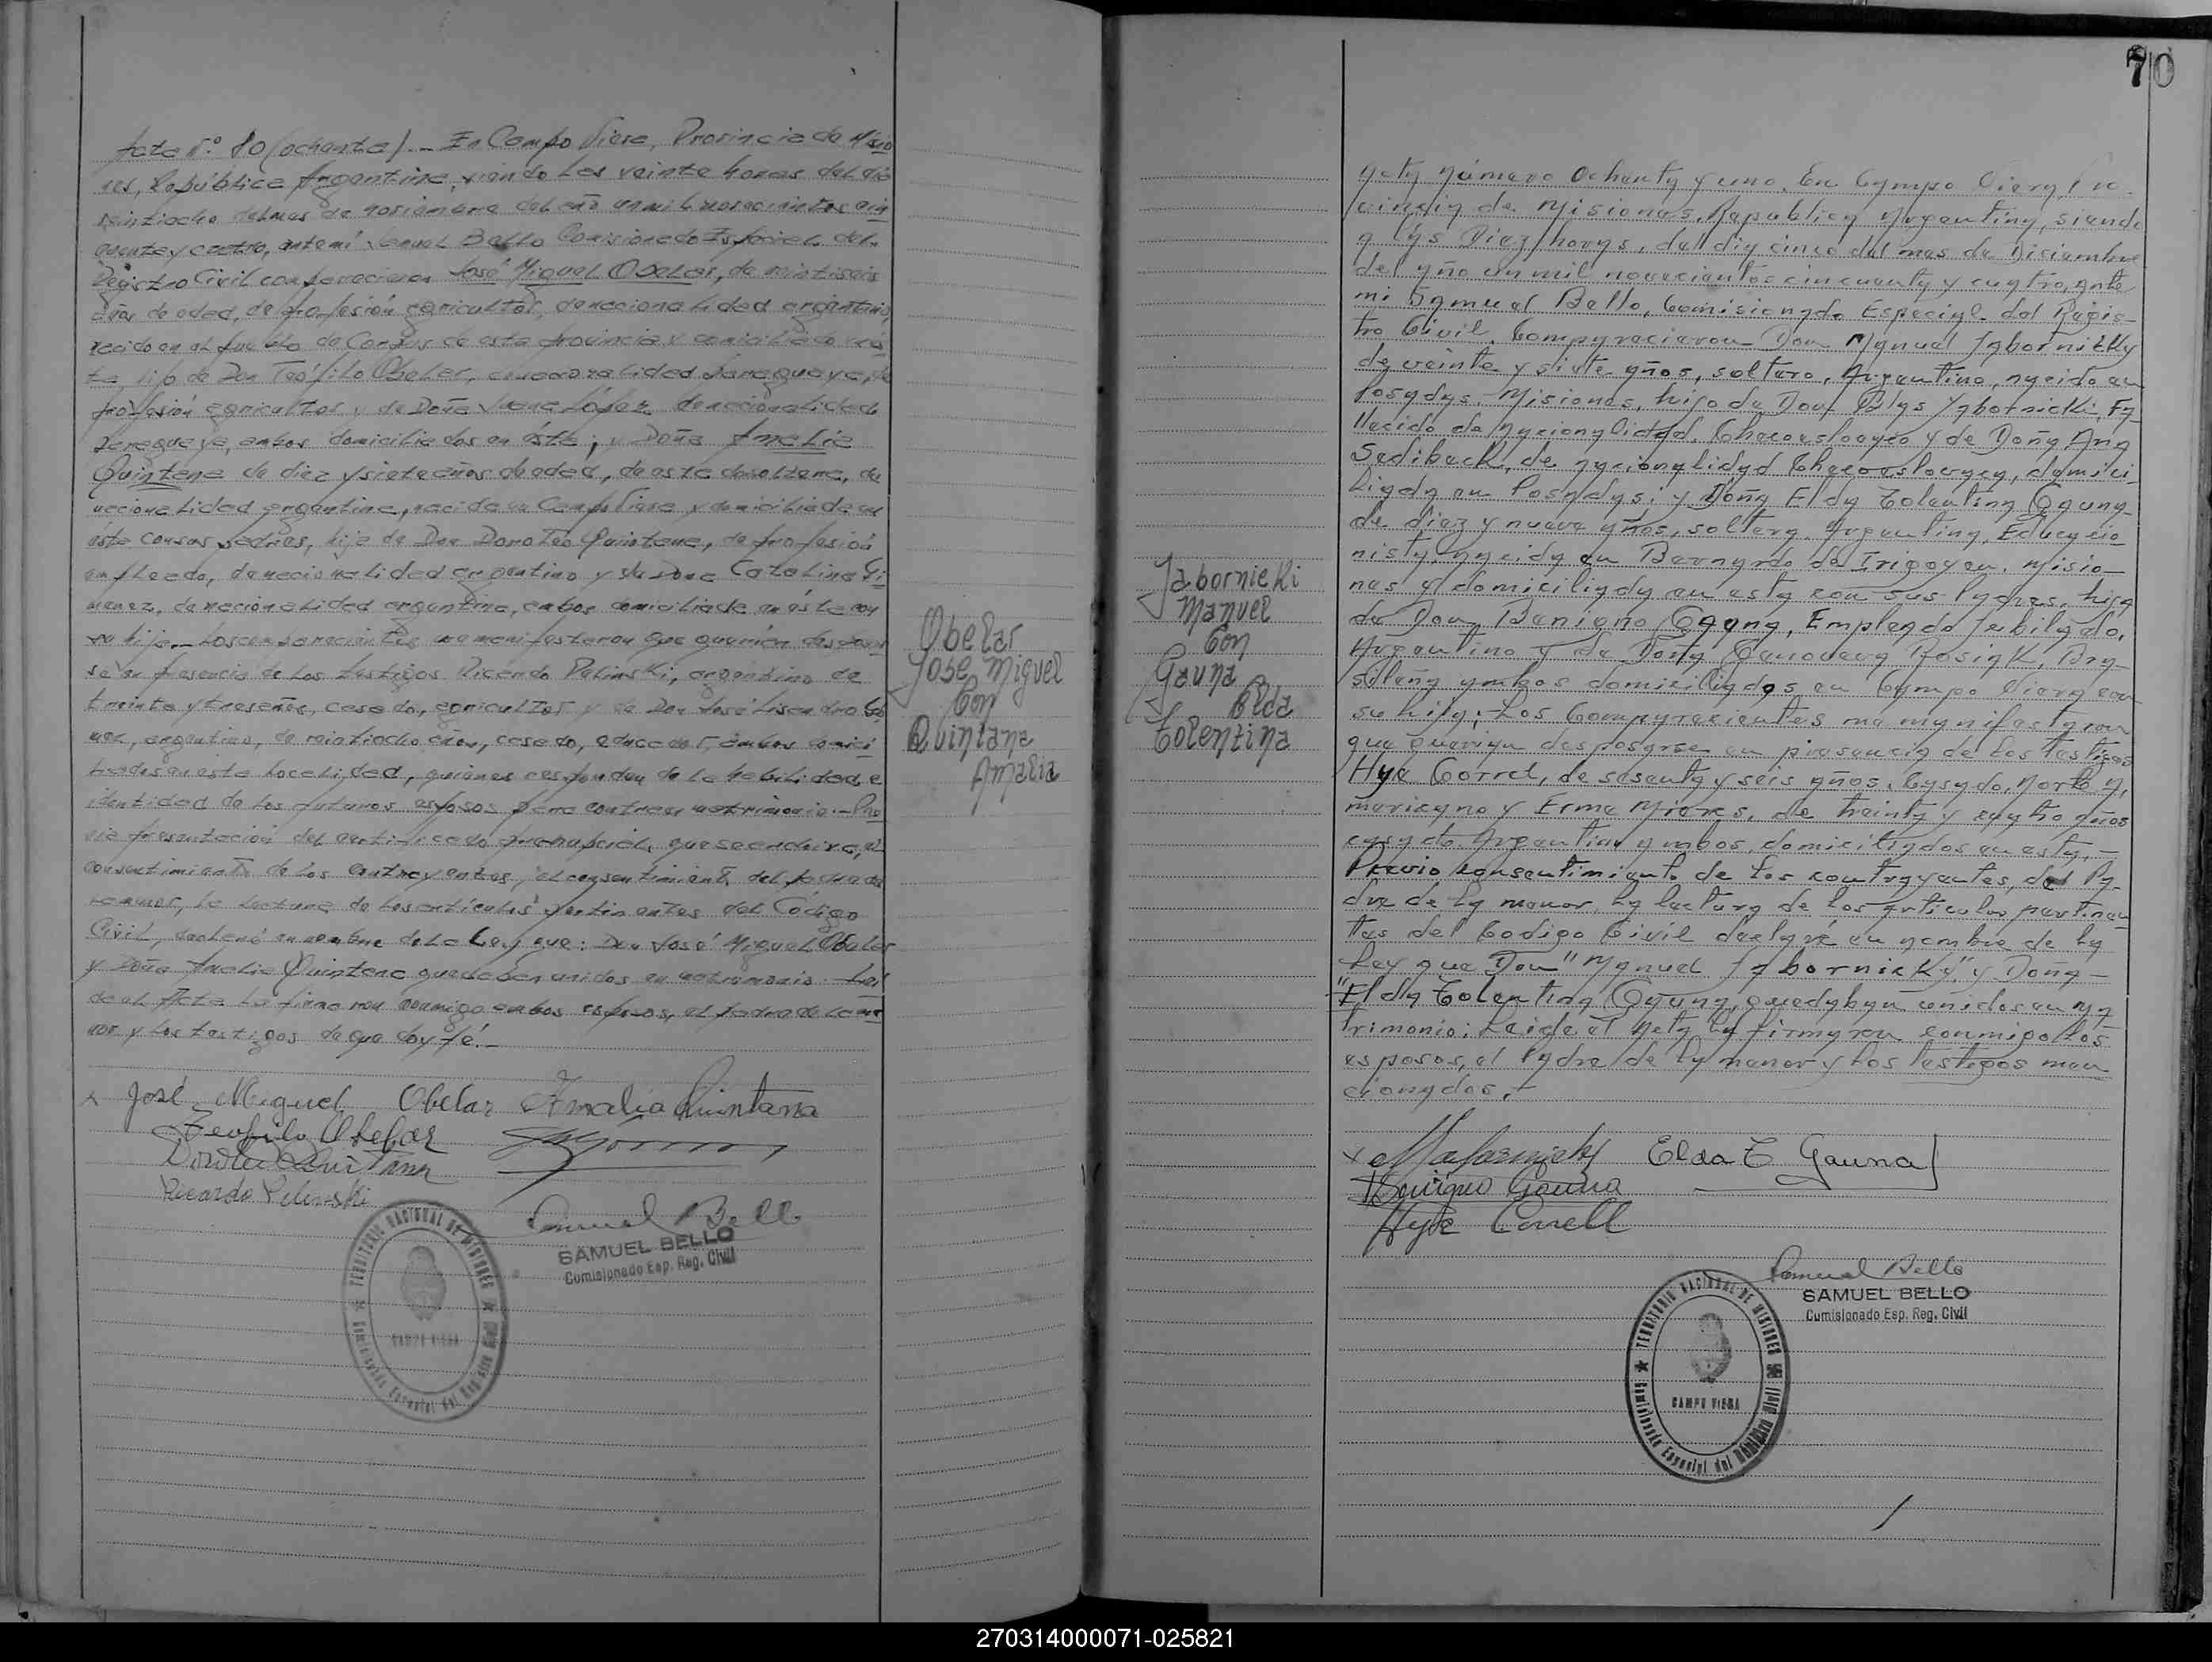 Acta N.º 80 (ochenta).- En Campo Viera, Provincia de Misio
nes, República Argentina, siendo las veinte horas del día
veintiocho del mes de noviembre del año un mil novecientos cin
cuenta y cuatro, ante mí Samuel Bello Comisionado Especial del
Registro Civil comparecieron José Miguel Obelar, de veintiseis
años de edad, de profesión agricultor, de nacionalidad argentino,
nacido en el pueblo de Corpus de esta provincia y domiciliado en es
ta, hijo de Don Teófilo Obelar, de nacionalidad paraguaya, de
profesión agricultor y de Doña Juana López, de nacionalidad
paraguaya, ambos domiciliados en ésta; y Doña Amalia
Quintana de diez y siete años de edad, de estado soltera, de
nacionalidad argentina, nacida en Campo Viera y domiciliada en
ésta con sus padres, hija de Don Doroteo Quintana, de profesión
empleado, de nacionalidad argentino y de Doña Catalina Gi
menez, de nacionalidad argentina, ambos domiciliados en ésta con
su hija.- Los comparecientes me manifestaron que querían desposar
se en presencia de los testigos Ricardo Pelinski, argentino de
treinta y tres años, casado, agricultor y de Don José Lisandro
argentino, de veintiocho años, casado, educador, ambos domici
liados en ésta localidad, quienes responden de la habilidad e
identidad de los futuros esposos para contraer matrimonio.- Pre
via presentación del certificado prenupcial, que se archiva, el
consentimiento de los contrayentes, el consentimiento del padre de
la menor, la lectura de los artículos pertinentes del Código
Civil, declaré en nombre de la Ley que: Don José Miguel Obelar
y Doña Amalia Quintana quedaban unidos en matrimonio.- Leí
da el Acta la firmaron conmigo ambos esposos, el padre de la me
nor y los testigos de que doy fé.-
José Miguel Obelar Amalia Quintana
Teofilo Obelar
Doroteo Quintana
Ricardo Pelinski
Samuel Bello
SAMUEL BELLO
Comisionado Esp. Reg. Civil
TERRITORIO NACIONAL DE MISIONES
CAMPO VIERA
Comisionado Especial del Registro Civil
Obelar
José Miguel
Con
Quintana
Amalia
70
Jabornicki
Manuel
Con
Gauna
Elda
Tolentina
Acta número Ochenta y uno. En Campo Viera, Pro-
vincia de Misiones, Republica Argentina, siendo
a las Diez horas, del dia cinco del mes de Diciembre
del año un mil novecientos cincuenta y cuatro, ante
mi Samuel Bello, Comisionado Especial del Regis-
tro Civil. Comparecieron Don Manuel Jabornicky
de veinte y siete años, soltero, Argentino, nacido en
Posadas Misiones, hijo de Don Blas Jabornicki, Fa-
llecido de nacionalidad Checoeslovaco y de Doña Ana
Sediback, de nacionalidad Checoeslovaca, domici-
liada en Posadas; y Doña Elda Tolentina Gauna
de diez y nueve años, soltera, Argentina, Educacio-
nista, nacida en Bernardo de Irigoyen, Misio-
nes y domiciliada en esta con sus padres, hija
de Don Benigno Gauna, Empleado Jubilado,
Argentino y de Doña Genoveva Rosiak, Bra-
sileña ambos domiciliados en Campo Viera con
su hija; Los Comparecientes me manifestaron
que querian desposarse en presencia de los testigos
Hye Correl, de sesenta y seis años, Casado, Norte A,
mericano y Erme Mieres, de treinta y cuatro años
casado Argentino ambos, domiciliados en esta,-
Previo consentimiento de los contrayentes, del Pa-
dre de la menor, la lectura de los articulos pertinen
tes del Codigo Civil declaré en nombre de la
Ley que Don "Manuel Jabornicky" y Doña-
"Elda Tolentina Gauna, quedaban unidos en Ma-
trimonio; Leida el Acta la firmaron conmigo los
esposos, el padre de la menor y los testigos men
cionados.-
MJabornicky Elda T Gauna
Benigno Gauna
Hye Correll
Samuel Bello
SAMUEL BELLO
Comisionado Esp. Reg. Civil
TERRITORIO NACIONAL DE MISIONES
CAMPO VIERA
Comisionado Especial del Registro Civil
270314000071-025821